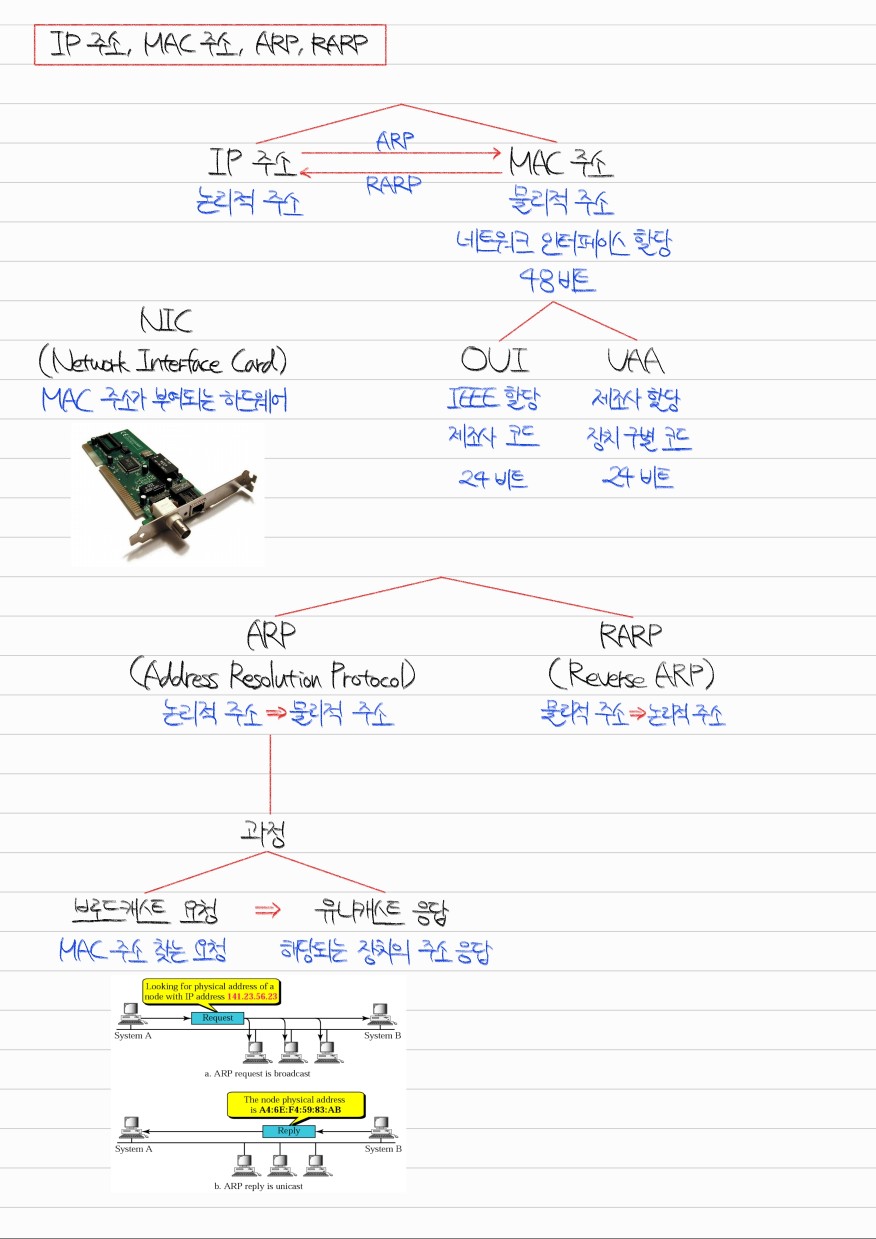 IP 주소, MAC 주소, ARP, RARP
ARP
IP 주소
MAC 주소
RARP
논리적 주소
물리적 주소
네트워크 인터페이스 할당
48비트
NIC
(Network Interface Card)
MAC 주소가 부여되는 하드웨어
OUI
UAA
IEEE 할당
제조사 할당
제조사 코드
장치 구별 코드
24 비트
24 비트
ARP
(Address Resolution Protocol)
논리적 주소 ⇒ 물리적 주소
RARP
(Reverse ARP)
물리적 주소 ⇒ 논리적 주소
과정
브로드캐스트 요청 ⇒ 유니캐스트 응답
MAC 주소 찾는 요청
해당되는 장치의 주소 응답
Looking for physical address of a
node with IP address 141.23.56.23
Request
System A
System B
a. ARP request is broadcast
The node physical address
is A4:6E:F4:59:83:AB
Reply
System A
System B
b. ARP reply is unicast